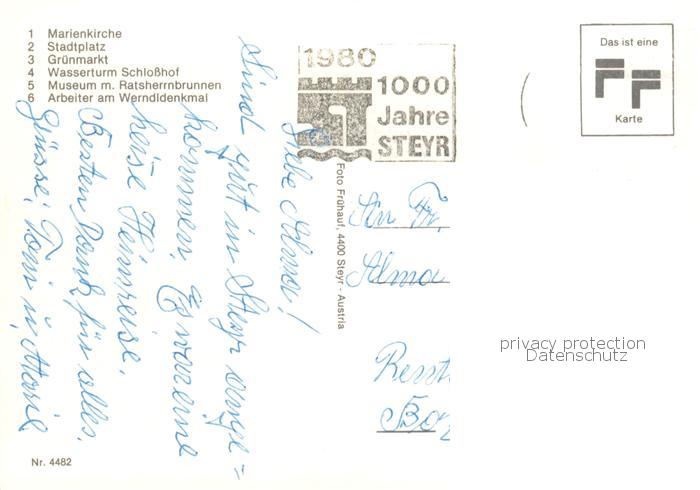 1 Marienkirche
2 Stadtplatz
3 Grünmarkt
4 Wasserturm Schloßhof
5 Museum m. Ratsherrnbrunnen
6 Arbeiter am Werndldenkmal
1980
1000
Jahre
STEYR
Das ist eine
FF
Karte
Liebe Alma!
Sind gut in Steyr ange=
kommen. Es war eine
heise Heimreise.
Besten Dank für alles.
Grüsse! Toni u. Marie
Foto Frühauf, 4400 Steyr - Austria
An Fr.
Alma
privacy protection
Datenschutz
Nr. 4482